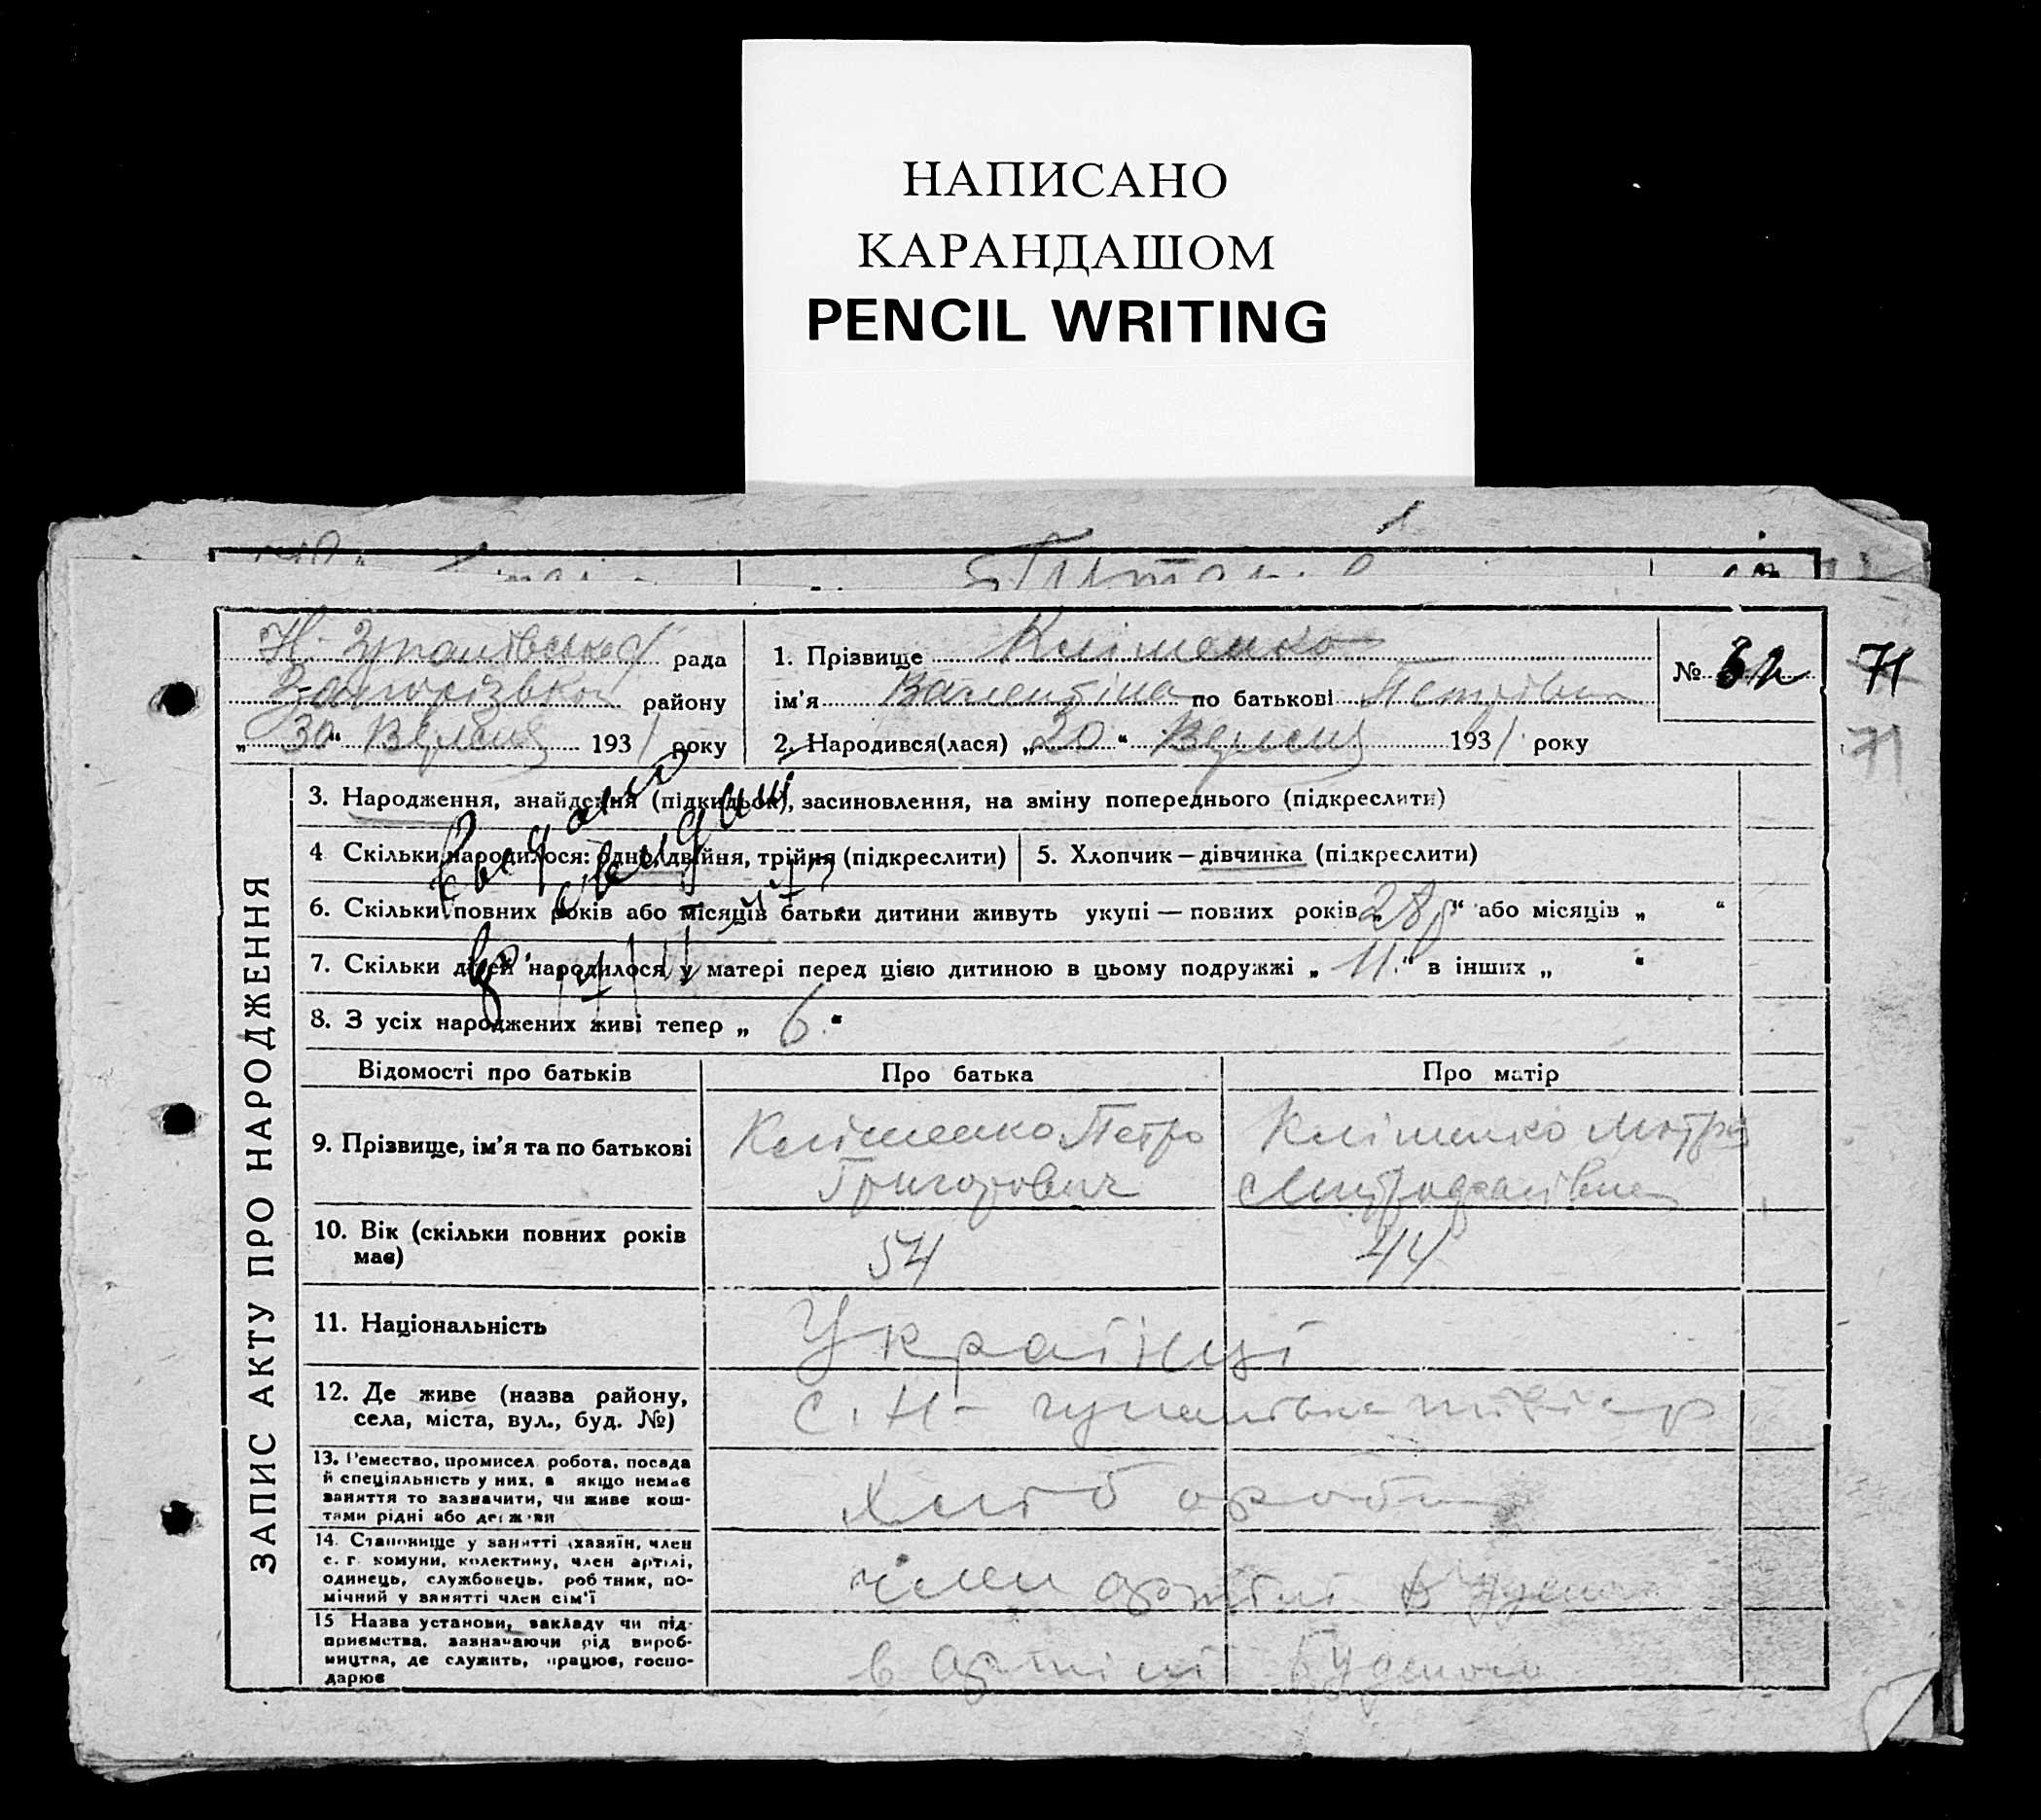 НАПИСАНО
КАРАНДАШОМ
PENCIL WRITING
рада
району
„30“ Вересня 1931 року
1. Прізвище Кліменко
ім'я Валентіна по батькові Петрівна
2. Народився(лася) „20“ Вересня 1931 року
№ 62
71
71
ЗАПИС АКТУ ПРО НАРОДЖЕННЯ
3. Народження, знайдення (підкидьок), засиновлення, на зміну попереднього (підкреслити)
4 Скільки народилося: одно, двійня, трійня (підкреслити)
5. Хлопчик — дівчинка (підкреслити)
6. Скільки повних років або місяців батьки дитини живуть укупі — повних років „28“ або місяців „ “
7. Скільки дітей народилося у матері перед цією дитиною в цьому подружжі „11“ в інших „ “
8. З усіх народжених живі тепер „6“
Відомості про батьків
Про батька
Про матір
9. Прізвище, ім'я та по батькові
Кліменко Петро
Григорович
Кліменко Мотря
10. Вік (скільки повних років
має)
54
44
11. Національність
Українці
12. Де живе (назва району,
села, міста, вул., буд. №)
с. Н-
13. Ремество, промисел, робота, посада
й спеціяльність у них, а якщо немає
заняття то зазначити, чи живе кош-
тами рідні або держави
Хлібороби
14. Становище у занятті (хазяїн, член
с. г. комуни, колективу, член артілі,
одинець, службовець, робітник, по-
мічний у занятті член сім'ї
член артілі
15 Назва установи, закладу чи під-
приємства, зазначаючи рід вироб-
ництва, де служить, працює, госпо-
дарює
в артілі